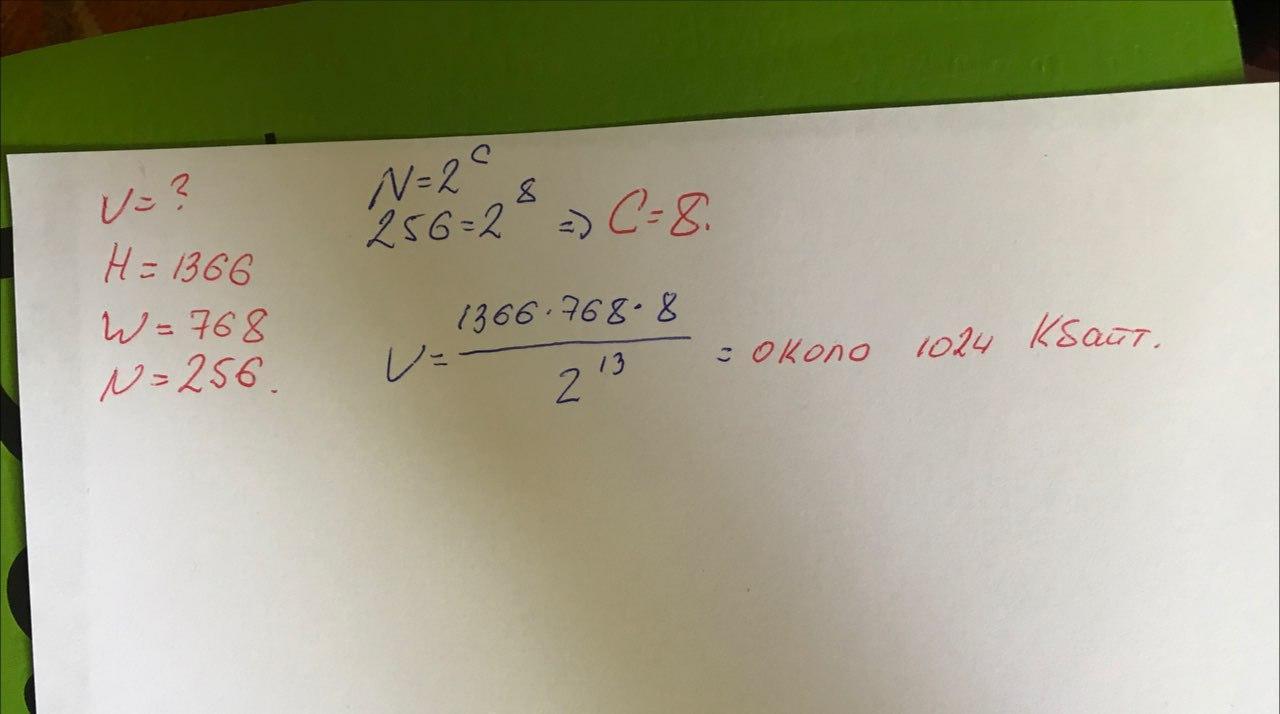 V = ?
H = 1366
W = 768
N = 256.
N = 2^C
256 = 2^8 => C = 8.
V = 1366 · 768 · 8 / 2^13 = около 1024 Кбайт.